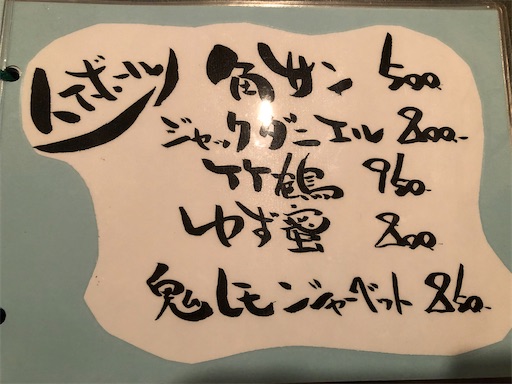 ハイボール
角サン 500-
ジャックダニエル 800-
竹鶴 950-
ゆず蜜 800-
鬼レモンジャーベット 850-